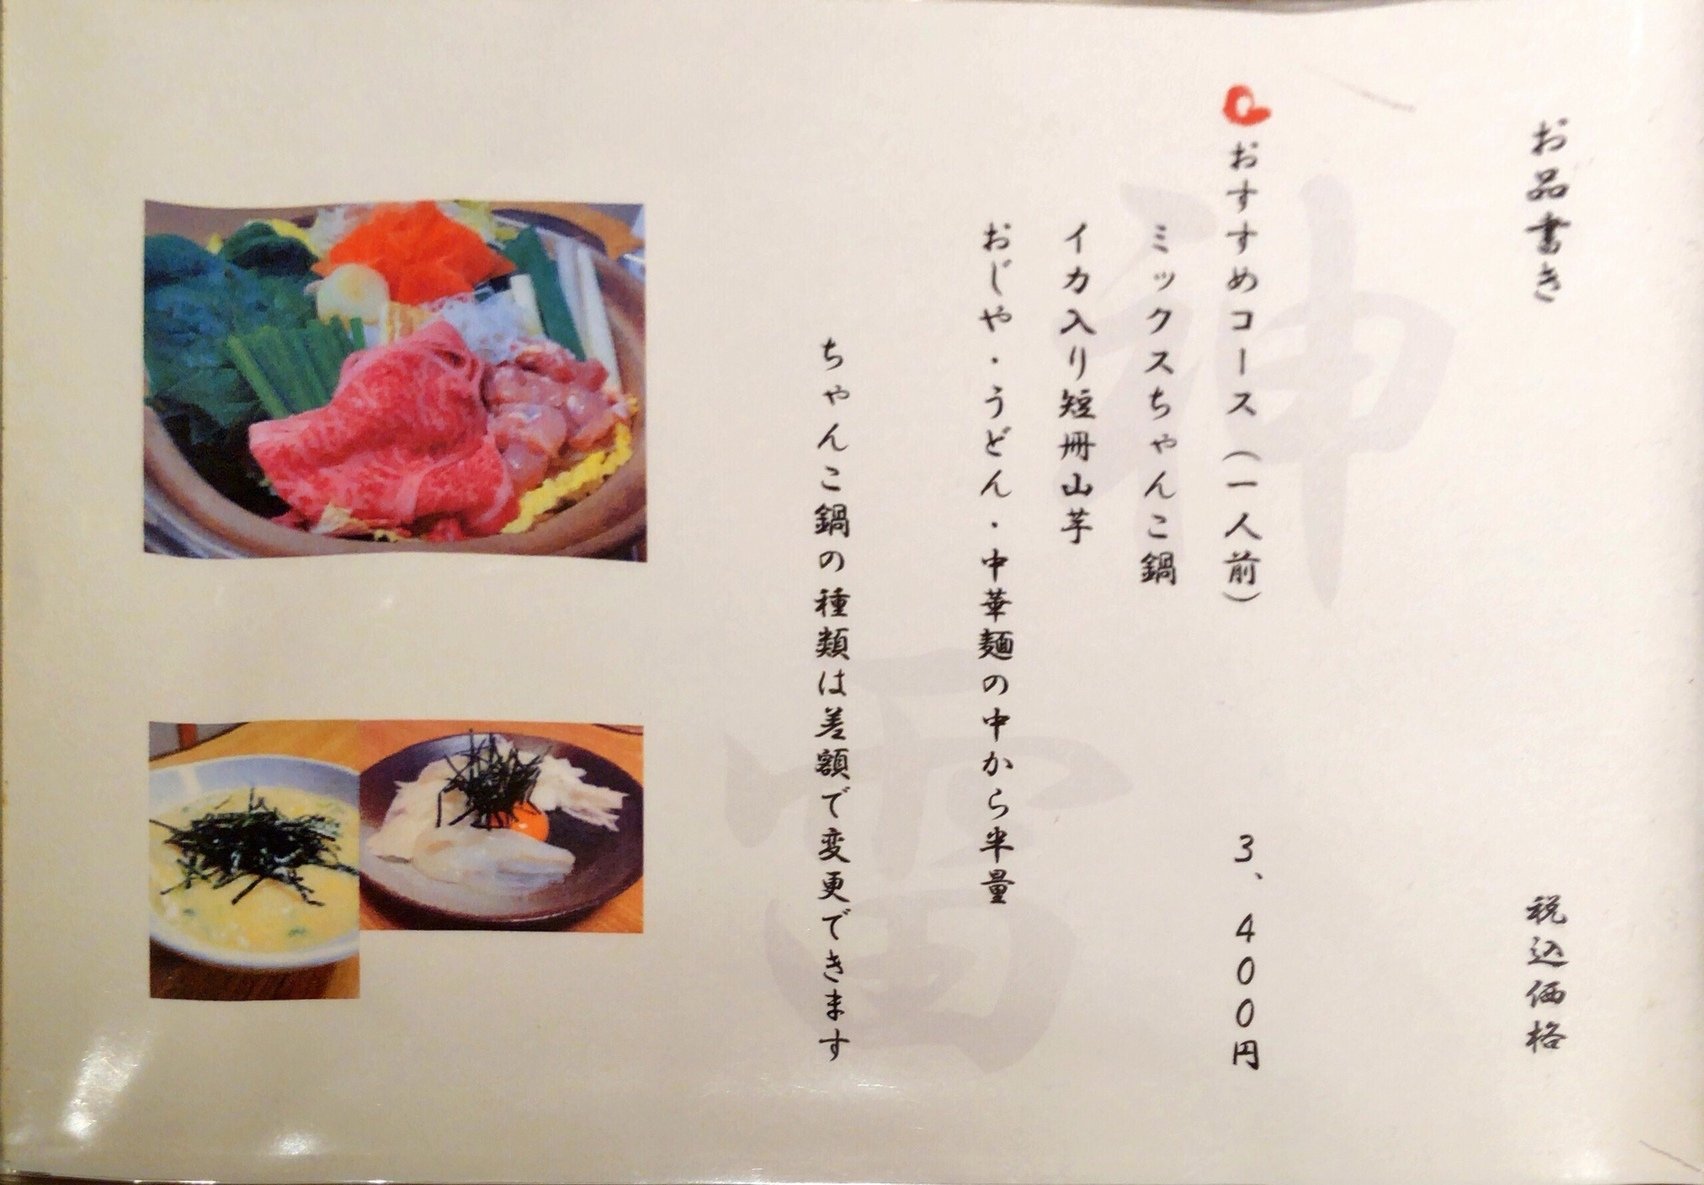 お品書き
税込価格
おすすめコース（一人前）
3、400円
ミックスちゃんこ鍋
イカ入り短冊山芋
おじや・うどん・中華麺の中から半量
ちゃんこ鍋の種類は差額で変更できます
神雷